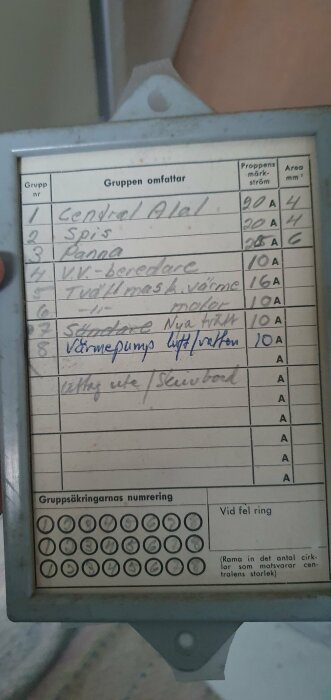 Grupp nr Gruppen omfattar Proppens märkström Area mm²
1 Central Atal 20 A 4
2 Spis 20 A 4
3 Panna 25 A 6
4 V.V.-beredare 10 A
5 Tvättmask. värme 16 A
6 -"- motor 10 A
7 Nya tvätt 10 A
8 Värmepump luft/vatten 10 A
A
uttag ute / A
A
A
A
A
A
Gruppsäkringarnas numrering
Vid fel ring
1 2 3 4 5 6 7 8
1 2 3 4 5 6 7 8
1 2 3 4 5 6 7 8
(Rama in det antal cirk-
lar som motsvarar cen-
tralens storlek)